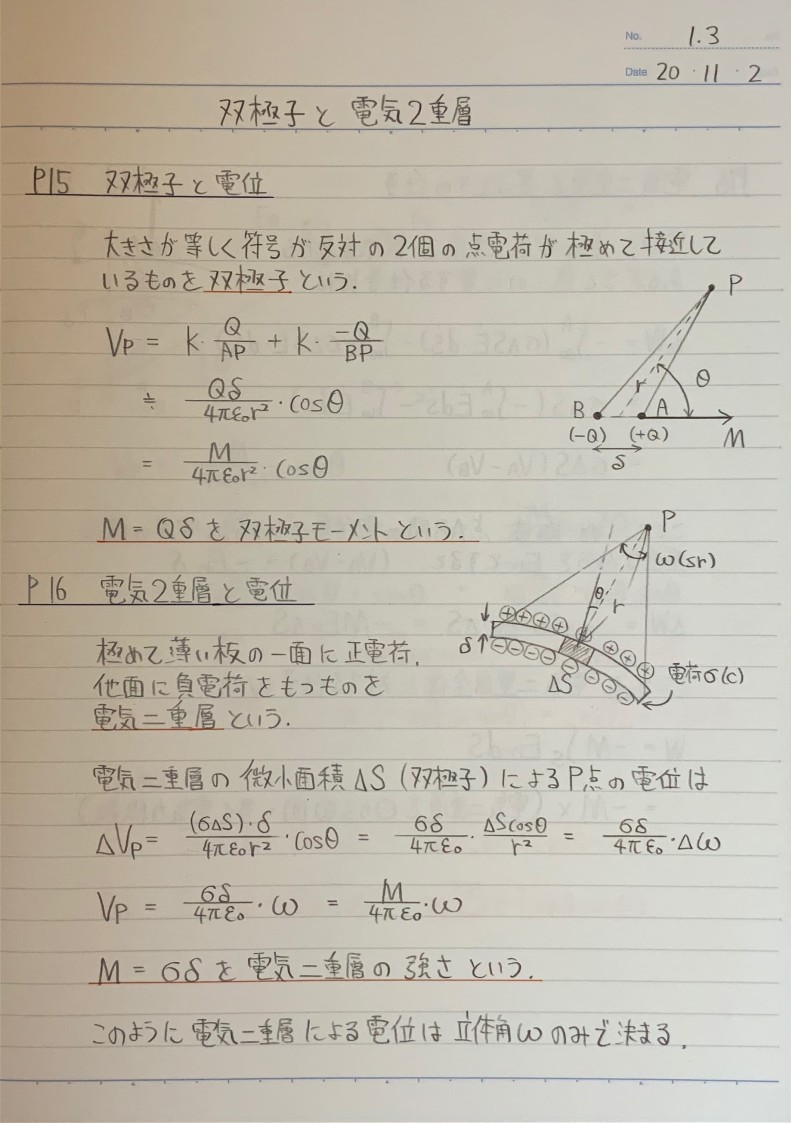 No. 1.3
Date 20・11・2
双極子と電気2重層
P15 双極子と電位
大きさが等しく符号が反対の2個の点電荷が極めて接近して
いるものを双極子という.
P
VP = k・Q/AP + k・-Q/BP
r θ
≒ Qδ/4πε₀r²・cosθ
B A
(-Q) (+Q) M
δ
= M/4πε₀r²・cosθ
M = Qδ を双極子モーメントという.
P
ω(sr)
P16 電気2重層と電位
θ r
⊕⊕⊕⊕ ⊕ ⊕⊕⊕⊕
δ
⊖⊖⊖⊖⊖ ⊖ ⊖⊖⊖
極めて薄い板の一面に正電荷,
ΔS
電荷σ(c)
他面に負電荷をもつものを
電気二重層という.
電気二重層の微小面積ΔS(双極子)によるP点の電位は
ΔVP = (σΔS)・δ/4πε₀r²・cosθ = σδ/4πε₀・ΔScosθ/r² = σδ/4πε₀・Δω
VP = σδ/4πε₀・ω = M/4πε₀・ω
M = σδ を電気二重層の強さという.
このように電気二重層による電位は立体角ωのみで決まる.